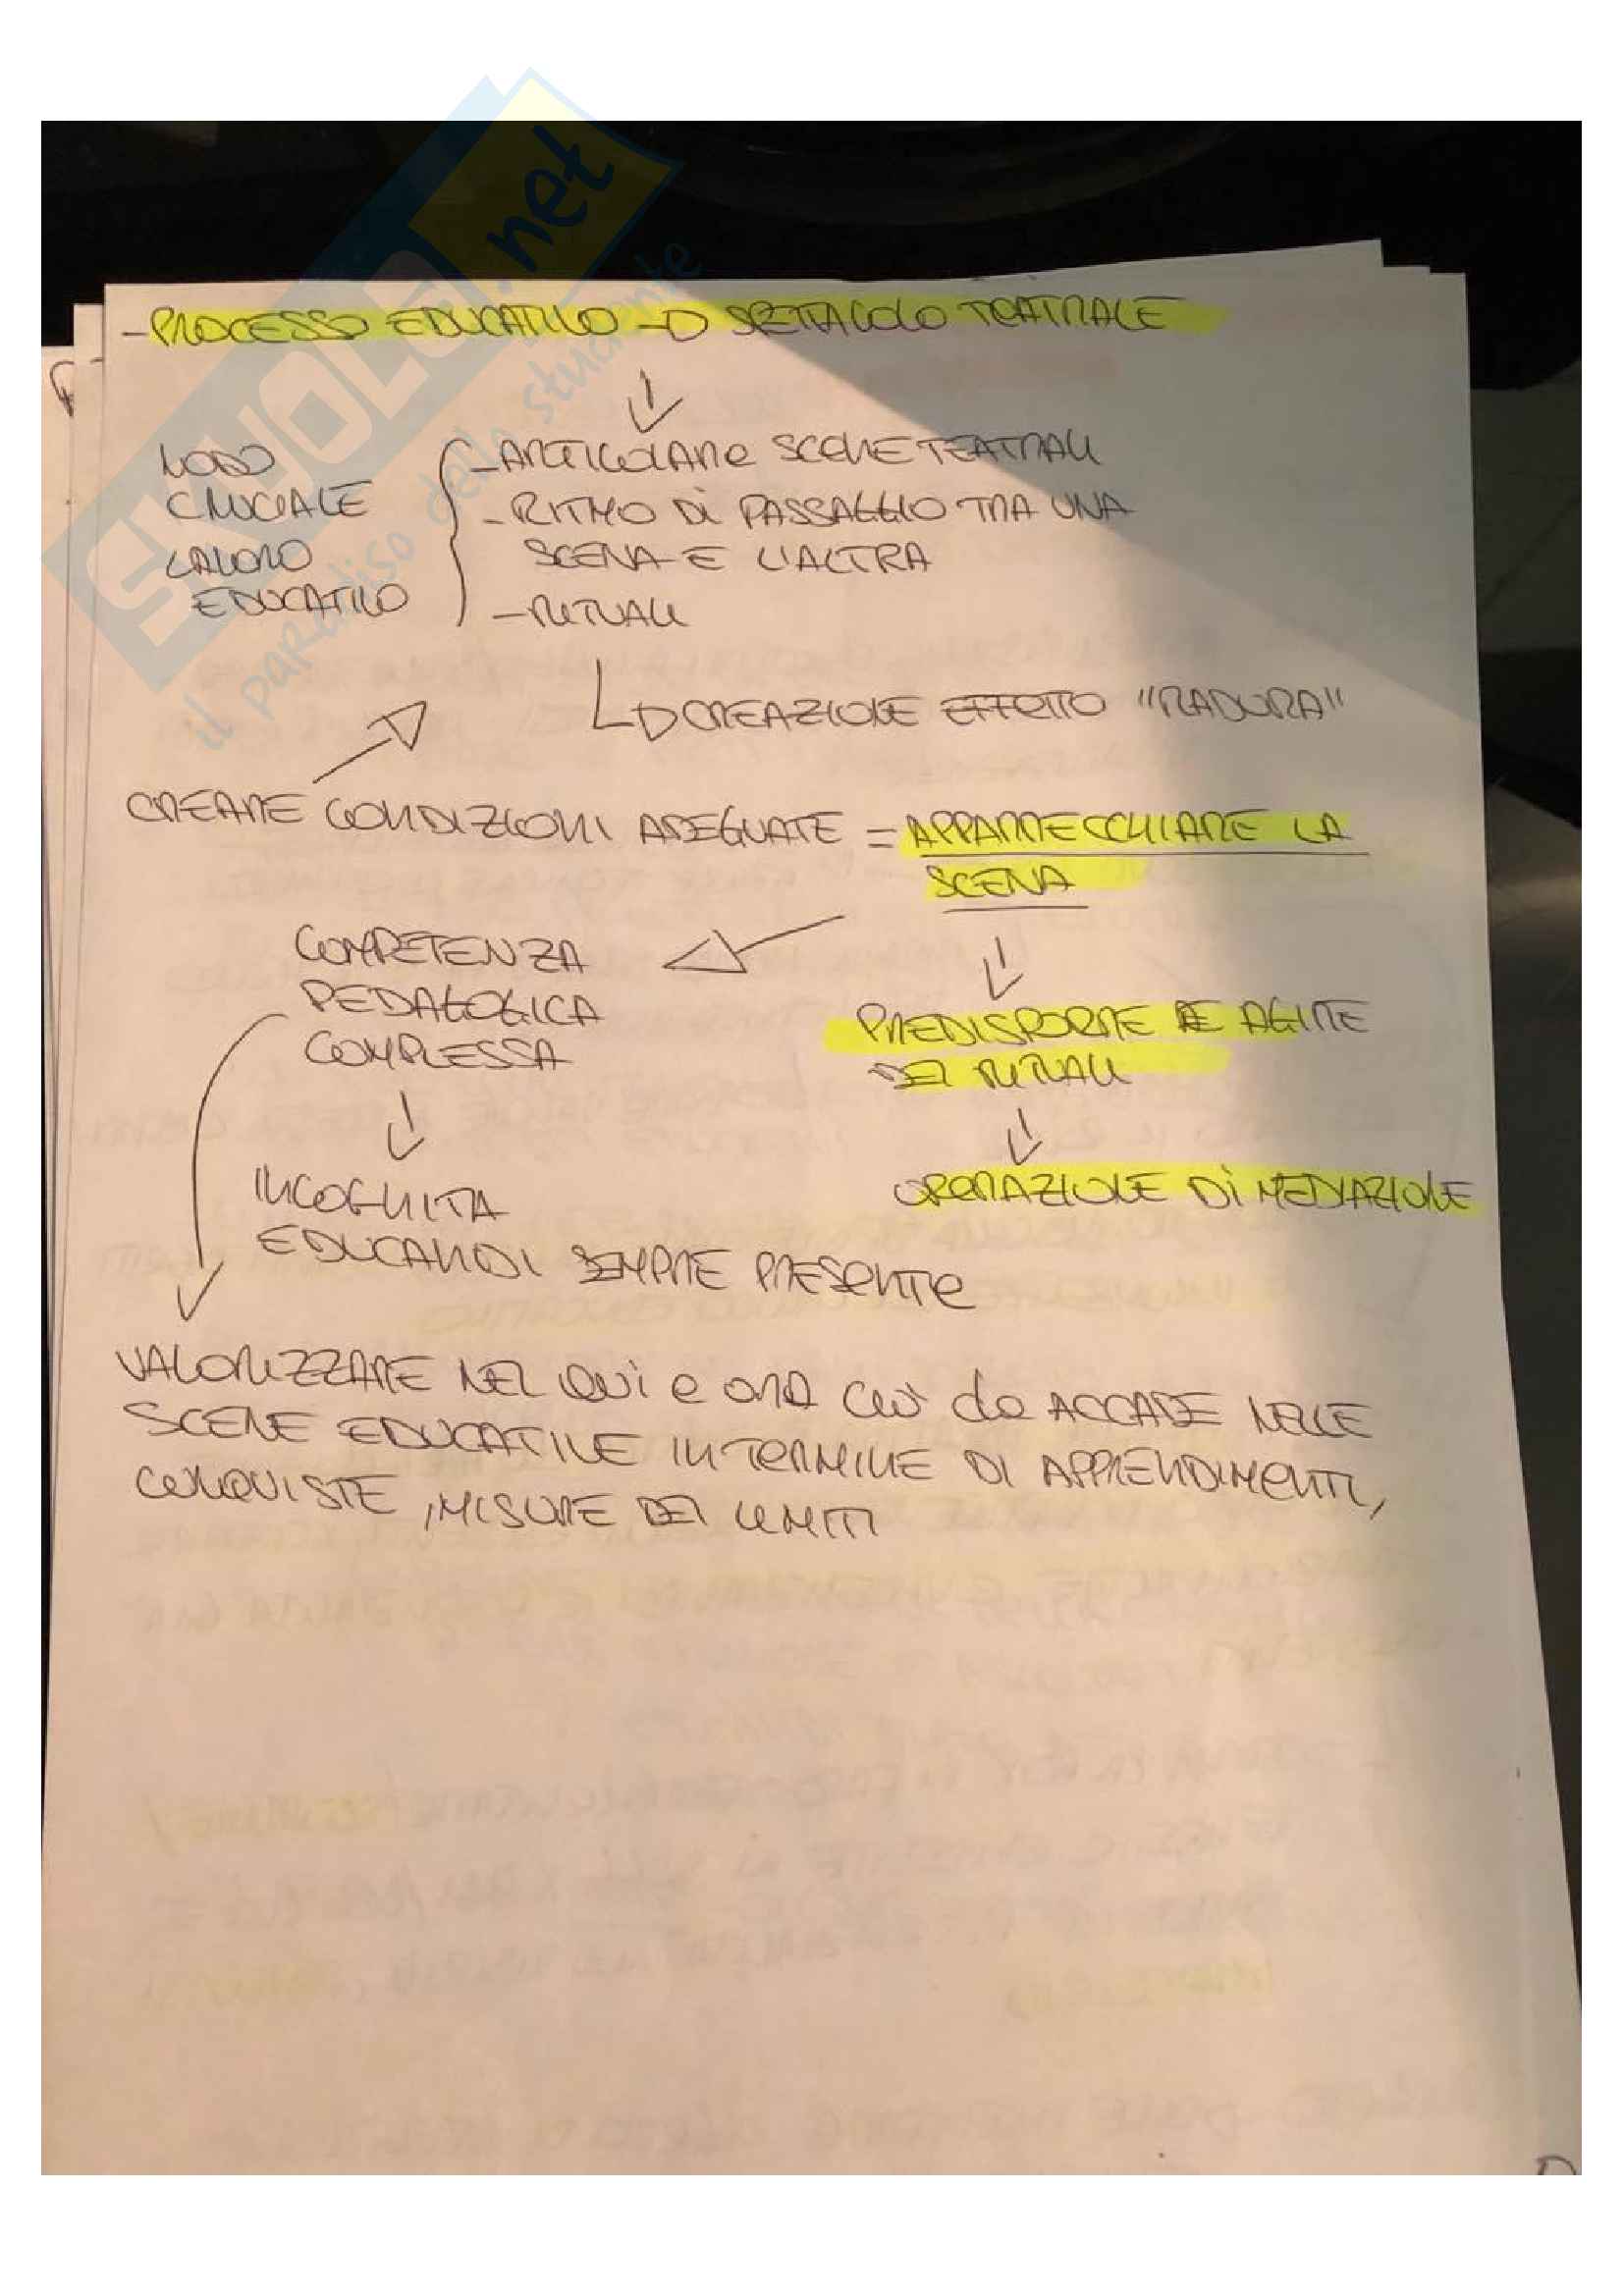 - PROCESSO EDUCATIVO → SPETTACOLO TEATRALE
NODO
CRUCIALE
LAVORO
EDUCATIVO
- ARTICOLARE SCENE TEATRALI
- RITMO DI PASSAGGIO TRA UNA
SCENA E L'ALTRA
- RITUALI
↳ CREAZIONE EFFETTO "RADURA"
CREARE CONDIZIONI ADEGUATE = APPARECCHIARE LA
SCENA
COMPETENZA
PEDAGOGICA
COMPLESSA
PREDISPORRE E AGIRE
DEI RITUALI
INCOGNITA
EDUCANDI SEMPRE PRESENTE
OPERAZIONE DI MEDIAZIONE
VALORIZZARE NEL QUI E ORA CIÒ che ACCADE NELLE
SCENE EDUCATIVE IN TERMINE DI APPRENDIMENTI,
CONQUISTE, MISURE DEI LIMITI
SKUOLA.net
il paradiso dello studente